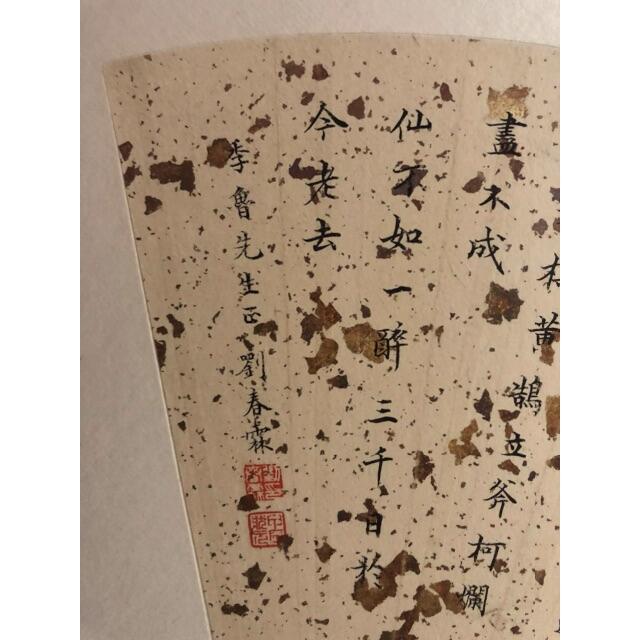 黄鵠立斧柯爛
盡不成
仙不如一醉三千日於
今老去
季魯先生正劉春霖